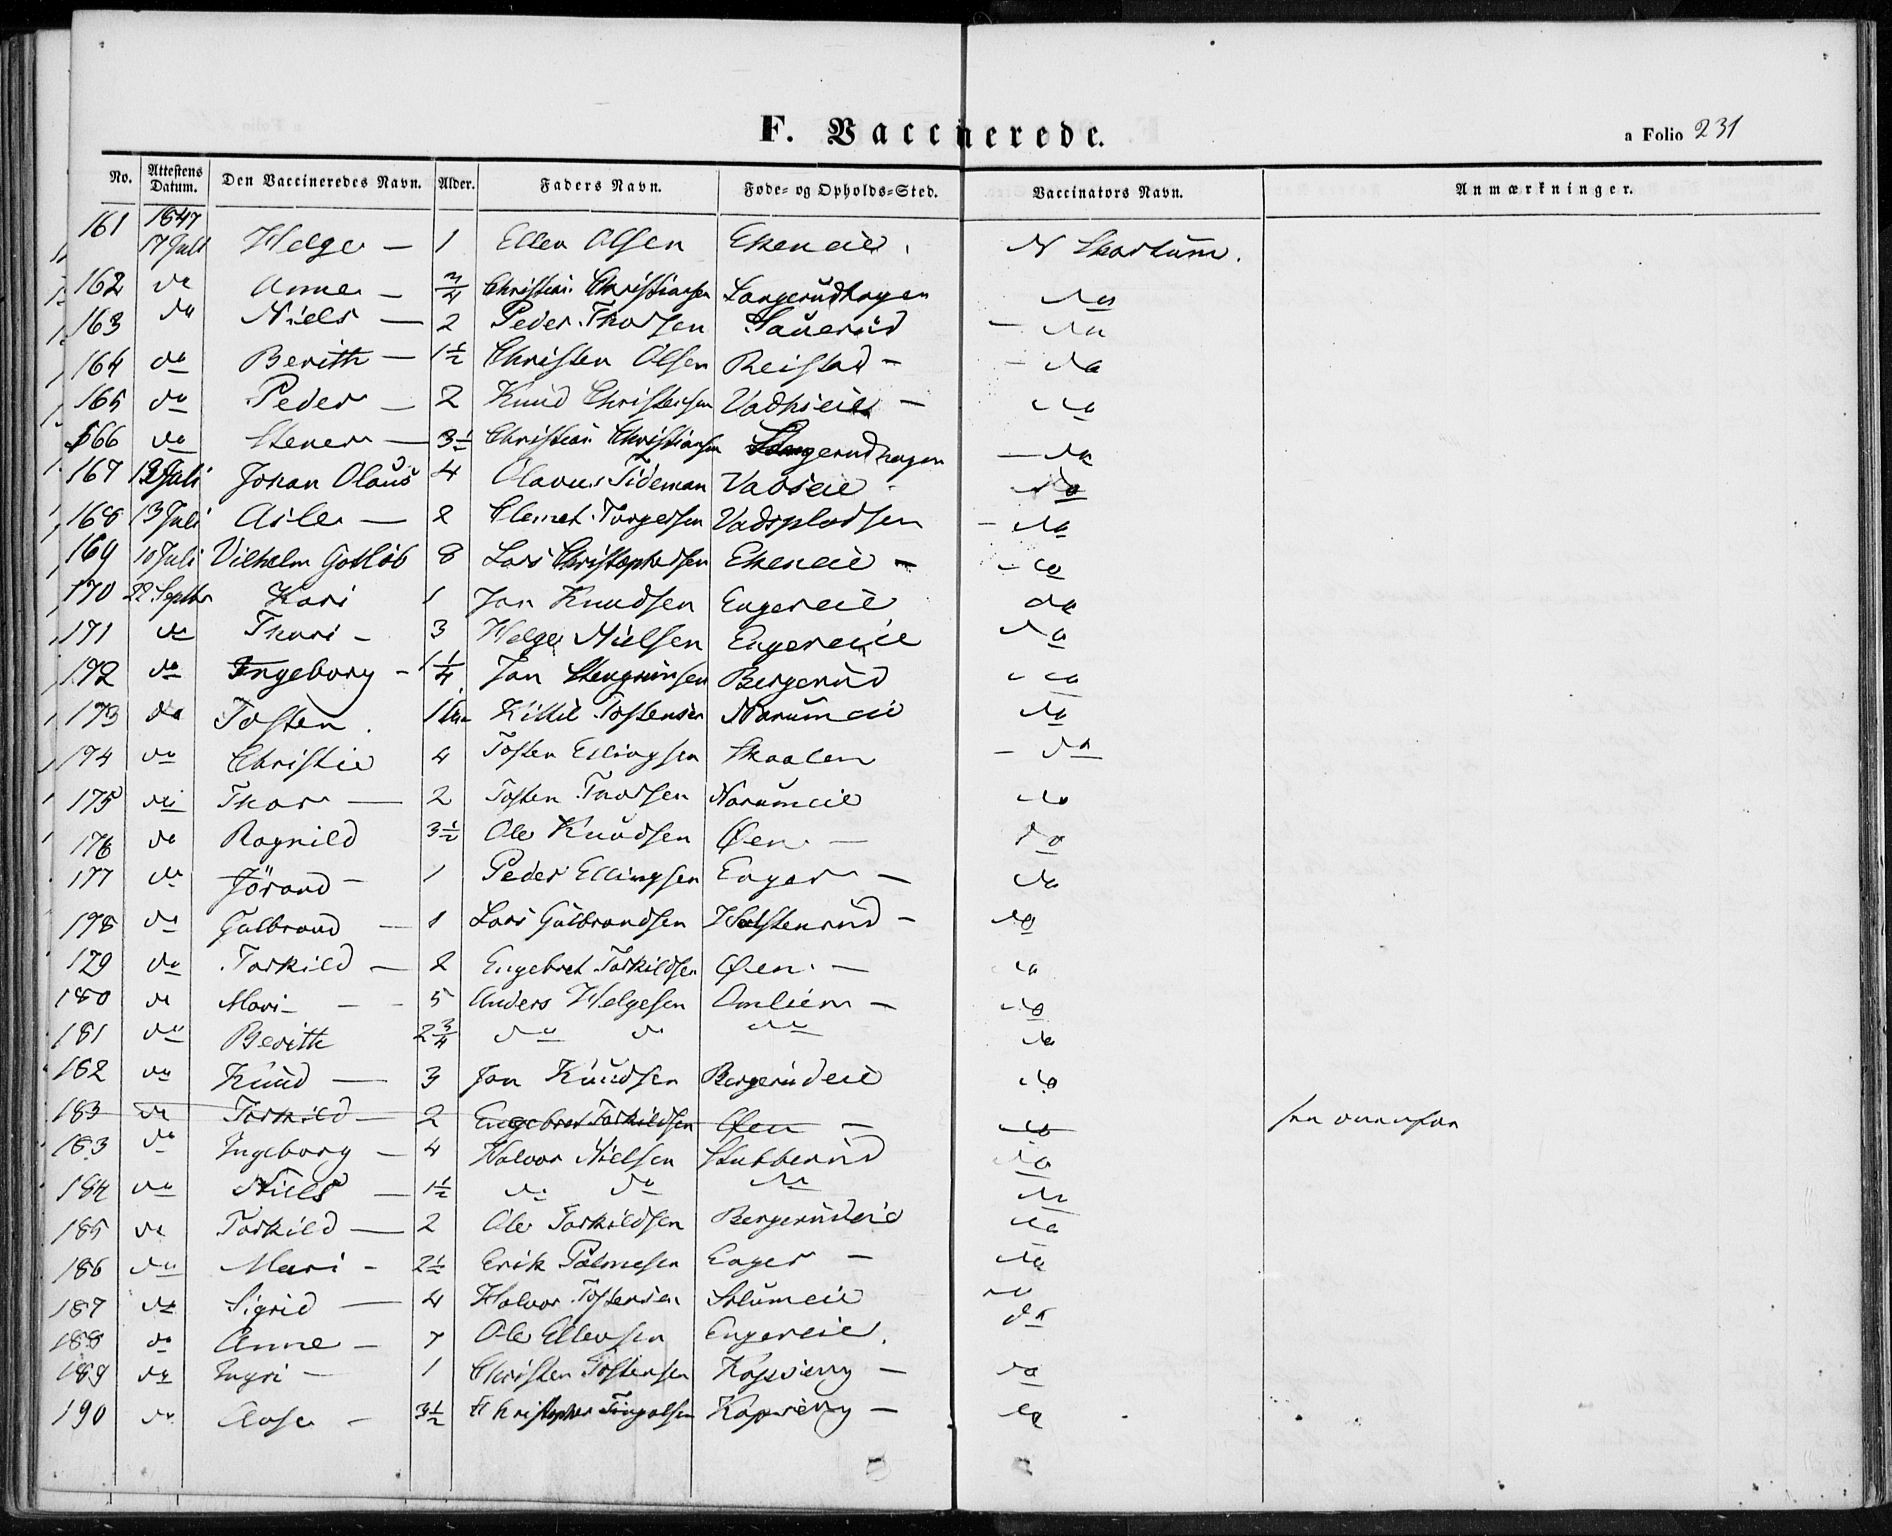 F. Vaccinerede.
a Folio 231
No. Attestens Datum. Den Vaccineredes Navn. Alder. Faders Navn. Føde- og Opholds-Sted. Vaccinators Navn. Anmærkninger.
161 1847 17 Juli Helge - 1 Ellen Olsen Ekeneie. N Skartum.
162 do Anne - 3/4 Christian Christiansen Langerudhagen do
163 do Niels - 2 Peder Thorsen Sauerud - do
164 do Berith - 1 1/2 Christen Olsen Reistad - - do
165 do Peder - 2 Knud Christensen - do
166 do Stener - 3 1/2 Christian Christiansen Langerudhagen - do
167 12 Juli Johan Olaus 4 Olavus Tideman Vadseie do
168 13 Juli Asle - 2 Clemet Torgersen Vadspladsen - do
169 10 Juli Vilhelm Gotlob 8 Lars Christophersen Ekeneie - - do
170 22 Septbr Kari 1 Jon Knudsen Engereie do
171 do Thori - 3 Helge Nielsen Engereie do
172 do Ingeborg - 1 1/4 Jon Stengrimsen Bergerud do
173 do Tosten. 1 Kittil Tostensen Narumeie do
174 do Christie 4 Tosten Ellingsen Skaalen - do
175 do Thor - 2 Tosten Thorsen Narumeie do
176 do Ragnild 3 1/2 Ole Knudsen Øen - do
177 do Jörand - 1 Peder Ellingsen Enger - do
178 do Gulbrand - 1 Lars Gulbrandsen Holstenrud - do
179 do Torkild - 2 Engebret Torkildsen Øen. - do
180 do Mari - - 5 Anders Helgesen Omlien - do
181 do Berith 2 3/4 do do do do
182 do Knud - 3 Jon Knudsen Bergerudeie do
183 do Torkild - 2 Engebret Torkildsen Øen - do
183 do Ingeborg - 4 Halvor Nielsen Stubberud do
184 do Niels - 1 1/2 do do do do
185 do Torkild - 2 Ole Torkildsen Bergerudeie do
186 do Mari - 2 1/2 Erik Palmesen Enger - do
187 do Sigrid - 4 Halvor Tostensen Solumeie do
188 do Anne - 7 Ole Ellensen Engereie. do
189 do Ingri - 1 Christen Tostensen - do
190 do Aase - 3 1/2 Christopher - do